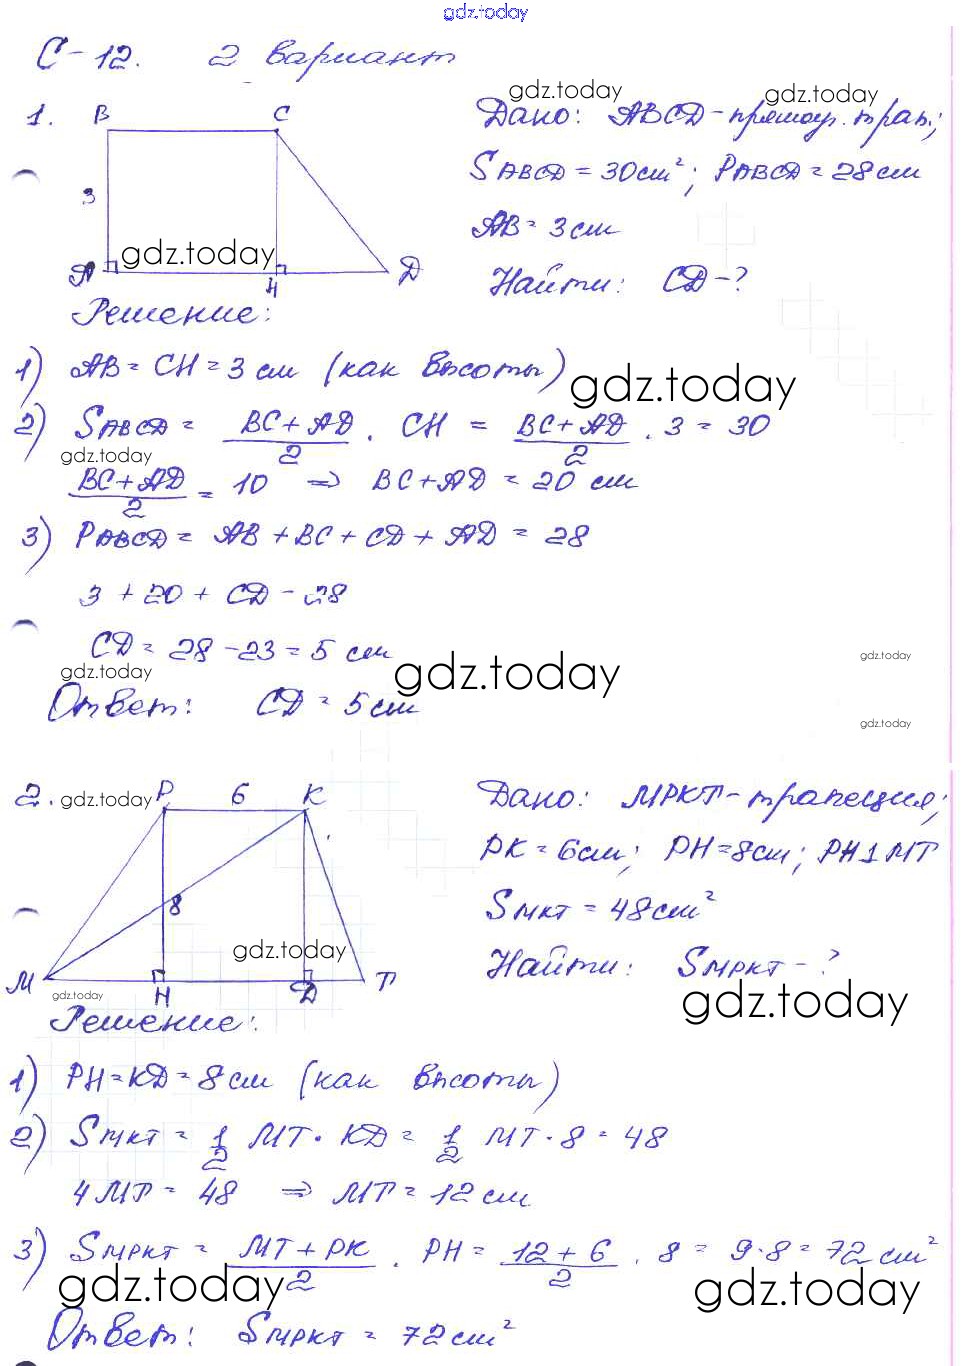 gdz.today
С-12. 2 вариант
gdz.today gdz.today
1. B C Дано: ABCD-прямоуг. трап.;
3 SABCD = 30см²; PABCD = 28см
AB = 3см
gdz.today
A H D Найти: CD-?
Решение:
1) AB = CH = 3 см (как высоты)
gdz.today
2) SABCD = (BC + AD)/2 · CH = (BC + AD)/2 · 3 = 30
gdz.today
(BC + AD)/2 = 10 => BC + AD = 20 см
3) PABCD = AB + BC + CD + AD = 28
3 + 20 + CD = 28
CD = 28 - 23 = 5 см
gdz.today gdz.today gdz.today
Ответ: CD = 5 см
gdz.today
2. gdz.today P 6 K Дано: МРКТ-трапеция;
PK = 6см; PH = 8см; PH⊥MT
8 SMKT = 48см²
gdz.today
M H D T Найти: SMPKT - ?
gdz.today gdz.today
Решение:
1) PH = KD = 8 см (как высоты)
2) SMKT = 1/2 MT · KD = 1/2 MT · 8 = 48
4MT = 48 => MT = 12 см
3) SMPKT = (MT + PK)/2 · PH = (12 + 6)/2 · 8 = 9·8 = 72 см²
gdz.today gdz.today
Ответ: SMPKT = 72 см²